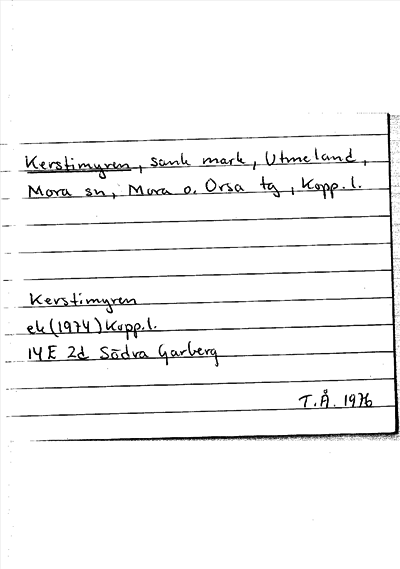 Kerstimyren, sank mark, Utmeland,
Mora sn, Mora o. Orsa tg, Kopp.l.
Kerstimyren
ek (1974) Kopp.l.
14 E 2d Södra Garberg
T.Å. 1976